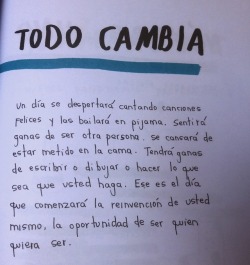 TODO CAMBIA
un día se despertará cantando canciones
felices y las bailará en pijama. Sentirá
ganas de ser otra persona. se cansará de
estar metido en la cama. Tendrá ganas
de escribir o dibujar o hacer lo que
sea que usted haga. Ese es el día
que comenzará la reinvención de usted
mismo, la oportunidad de ser quien
quiera ser.